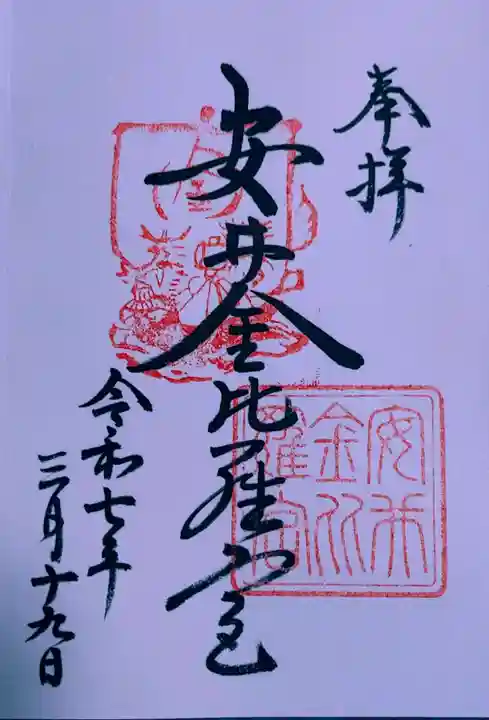 奉拝
安井金比羅宮
安井金比羅宮
令和七年
三月十九日